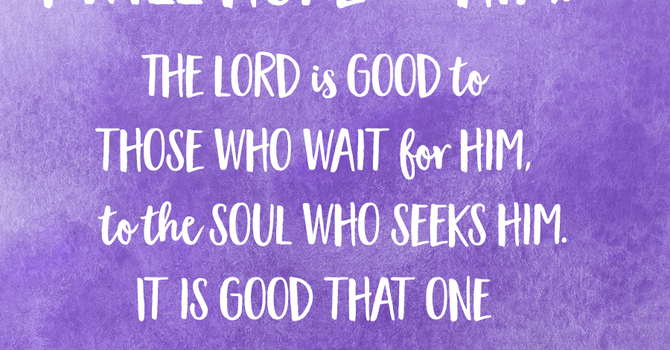 THE LORD is GOOD to
THOSE WHO WAIT for HIM,
to the SOUL WHO SEEKS HIM.
IT IS GOOD THAT ONE